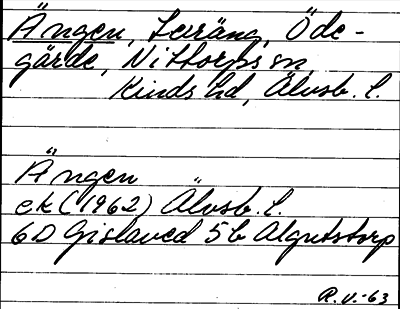 Ängen, teräng, Öde-
gärde, Nittorps sn,
Kinds hd, Älvsb. l.
Ängen
ek (1962) Älvsb. l.
6D Gislaved 5b Algutstorp
R.V.-63